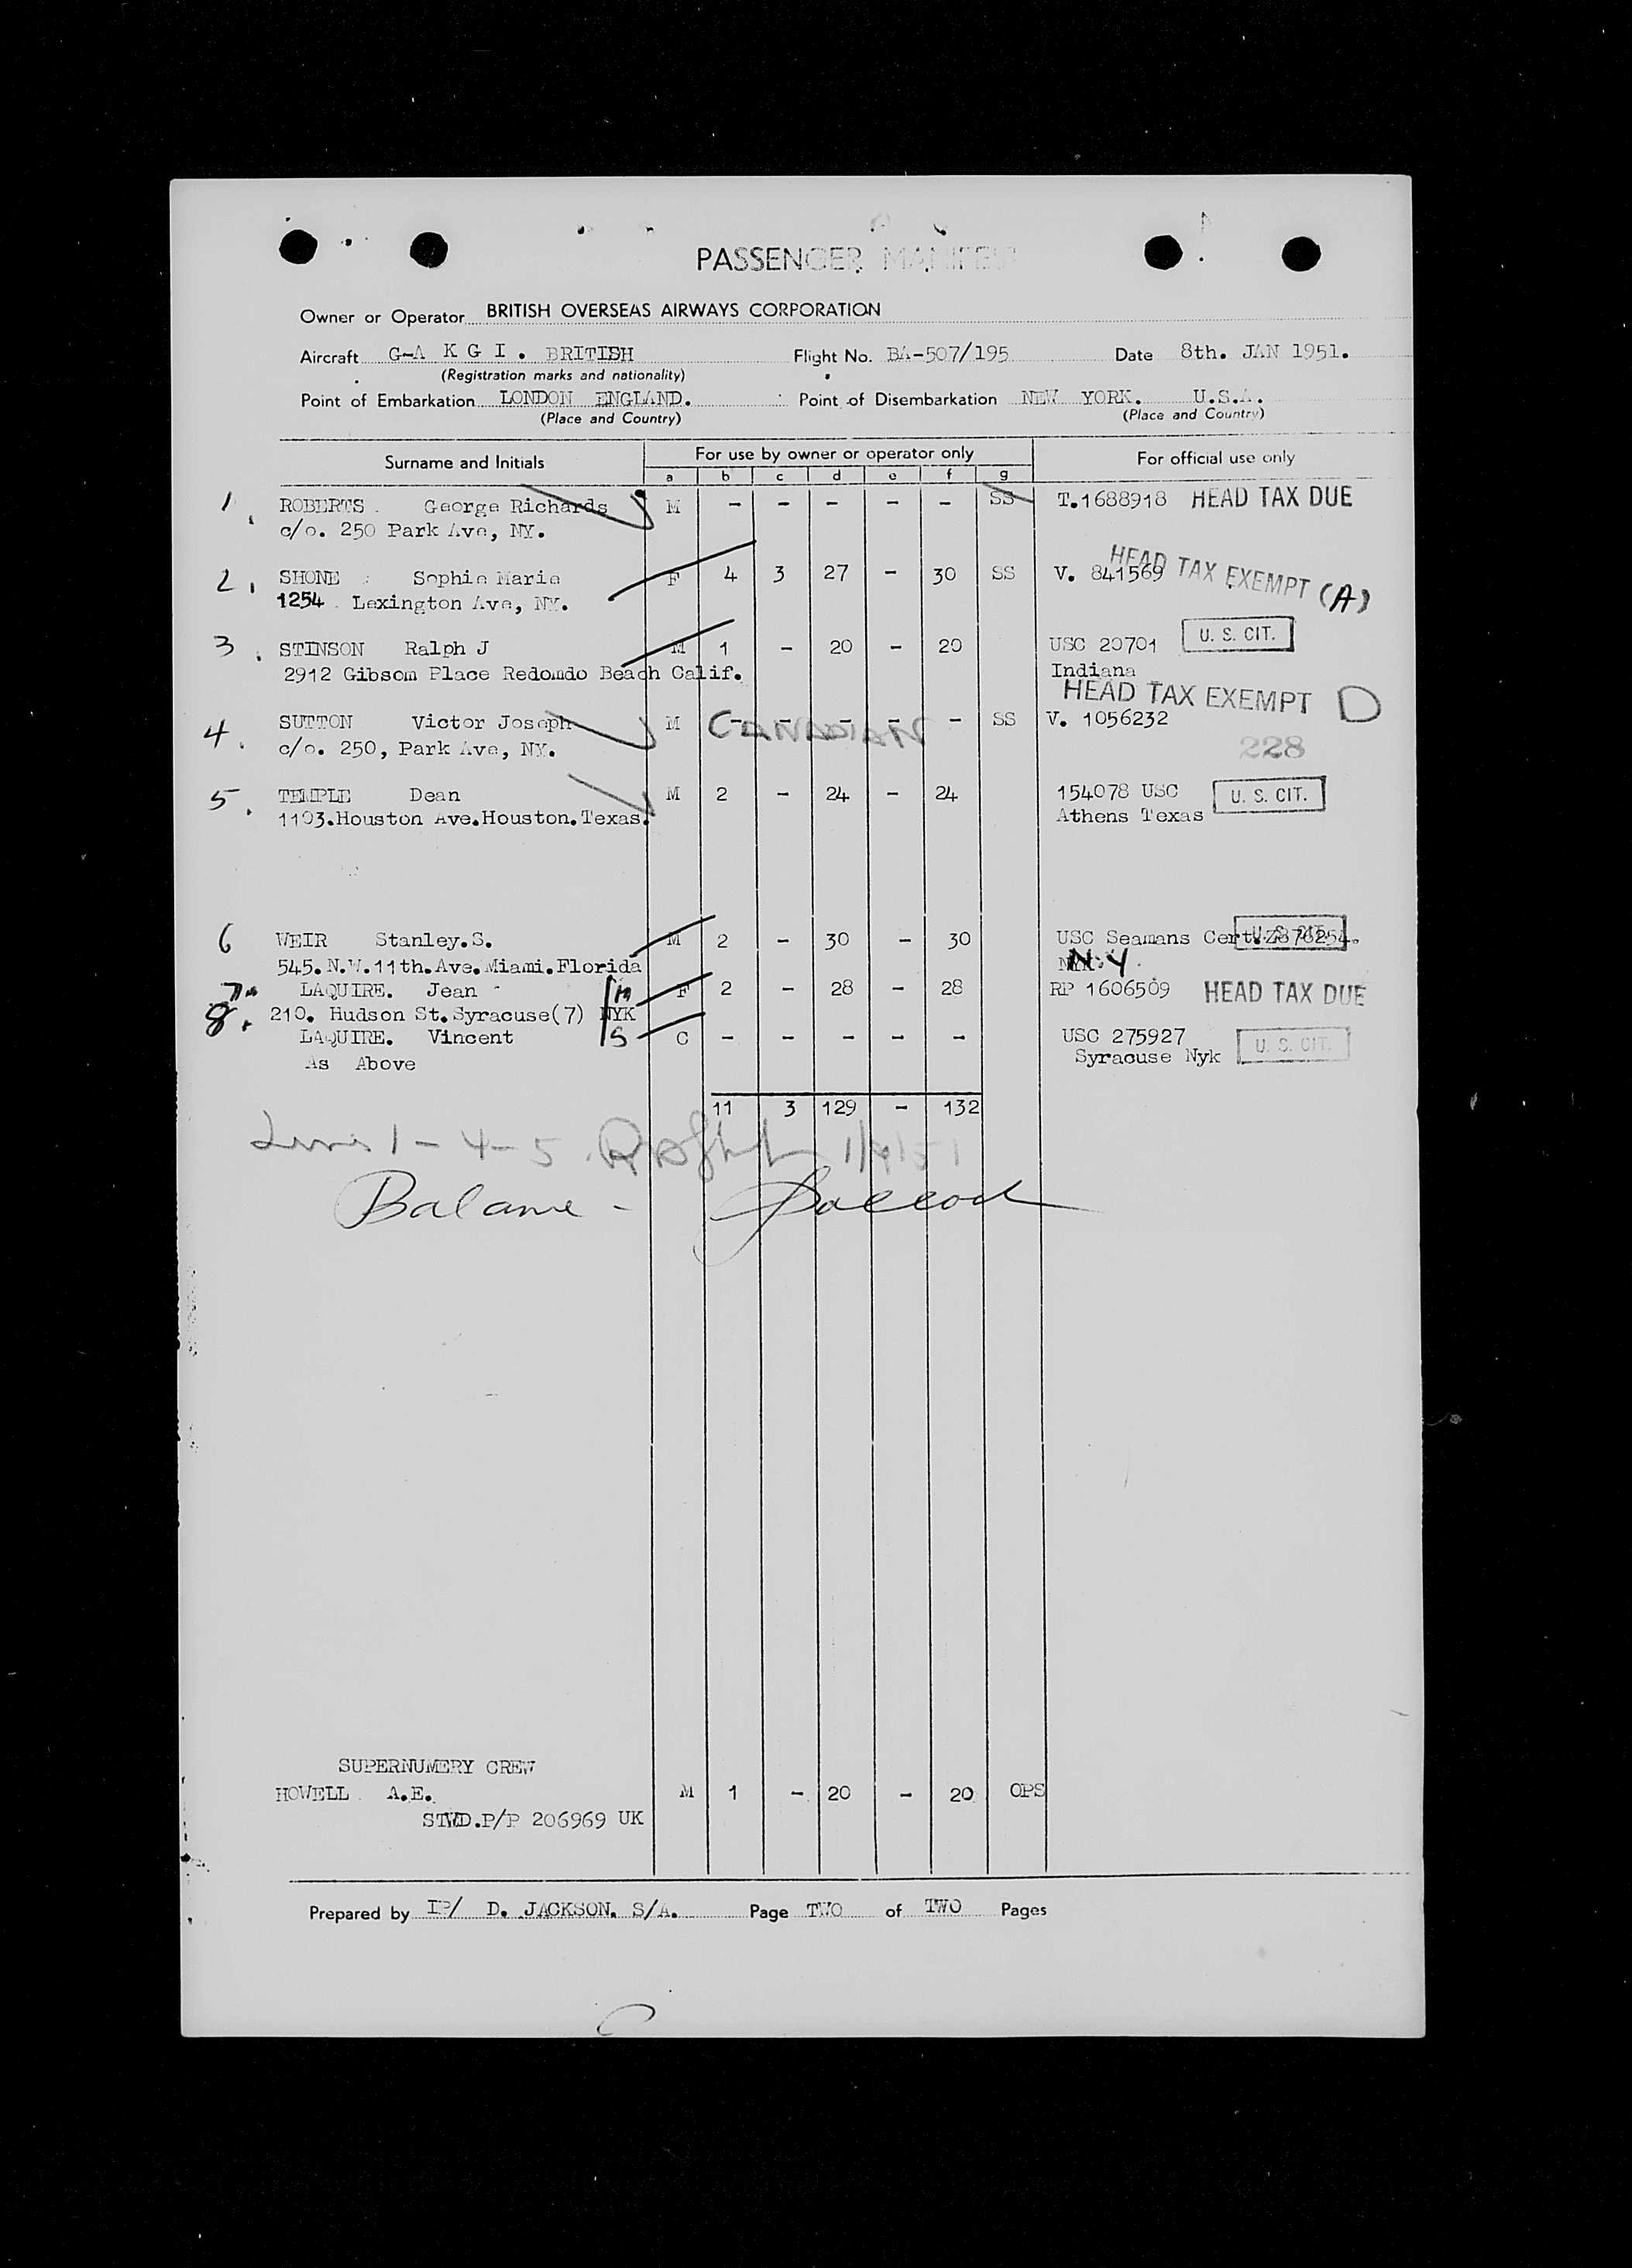 PASSENGER MANIFEST
Owner or Operator BRITISH OVERSEAS AIRWAYS CORPORATION
Aircraft G-A K G I . BRITISH Flight No. BA-507/195 Date 8th. JAN 1951.
(Registration marks and nationality)
Point of Embarkation LONDON ENGLAND. Point of Disembarkation NEW YORK. U.S.A.
(Place and Country) (Place and Country)
Surname and Initials For use by owner or operator only For official use only
a b c d e f g
1. ROBERTS . George Richards M - - - - - SS T.1688918 HEAD TAX DUE
c/o. 250 Park Ave, NY.
2. SHONE Sophie Marie F 4 3 27 - 30 SS V. 841569 HEAD TAX EXEMPT (A)
1254 . Lexington Ave, NY.
3. STINSON Ralph J M 1 - 20 - 20 USC 20701 U. S. CIT.
2912 Gibsom Place Redomdo Beach Calif. Indiana
HEAD TAX EXEMPT D
4. SUTTON Victor Joseph M - - - - - SS V. 1056232
CANADIAN
c/o. 250, Park Ave, NY. 228
5. TEMPLE Dean M 2 - 24 - 24 154078 USC U. S. CIT.
1103.Houston Ave.Houston.Texas. Athens Texas
6 WEIR Stanley.S. M 2 - 30 - 30 USC Seamans Cert.Z876254. U. S. CIT.
545.N.W.11th.Ave.Miami.Florida N.Y.
7. LAQUIRE. Jean M F 2 - 28 - 28 RP 1606509 HEAD TAX DUE
8. 210. Hudson St.Syracuse(7) NYK
LAQUIRE. Vincent S C - - - - - USC 275927
As Above Syracuse Nyk U. S. CIT.
11 3 129 - 132
Lines 1 - 4 - 5
Balance -
SUPERNUMERY CREW
HOWELL . A.E. M 1 - 20 - 20 OPS
STWD.P/P 206969 UK
Prepared by IP/ D. JACKSON. S/A. Page TWO of TWO Pages